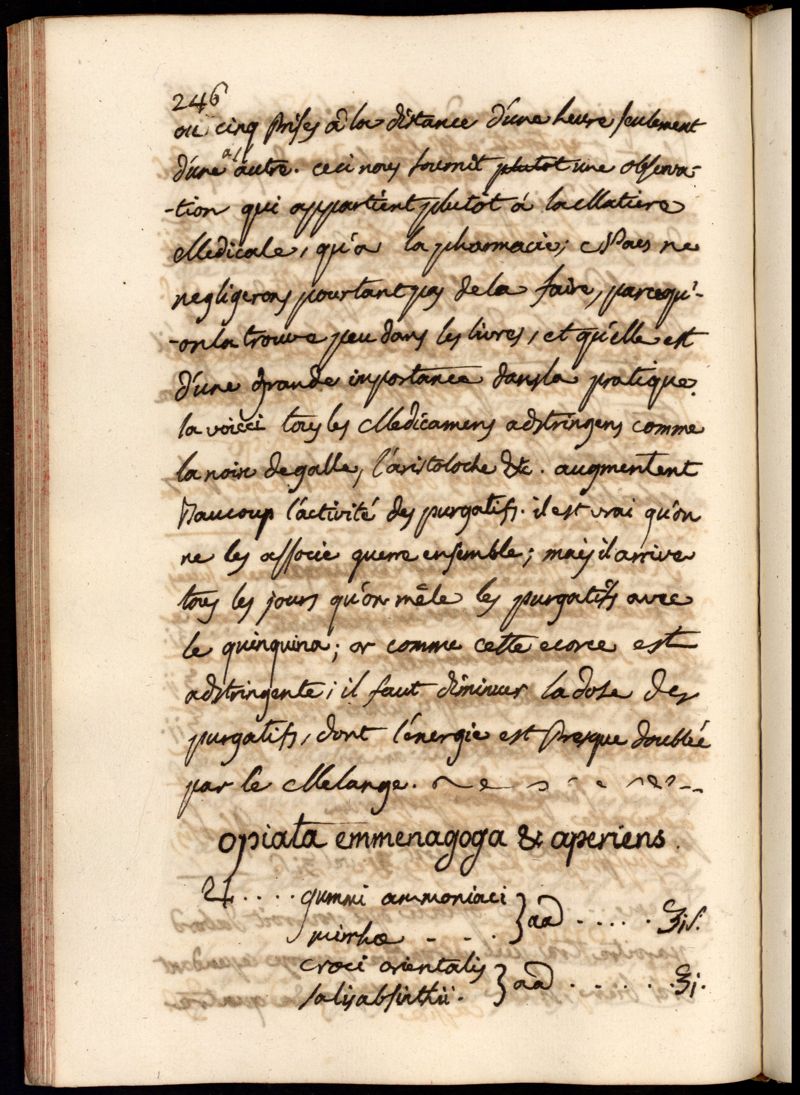 246
ou cinq prises à la distance d'une heure seulement
d'une à l'autre. ceci nous fournit plutot une observa-
-tion qui appartient plutôt à la Matiere
Medicale, qu'a la pharmacie; Nous ne
negligerons pourtant pas de la faire, parcequ'-
-on la trouve peu dans les livres, et qu'elle est
d'une grande importance dans la pratique.
la voicci tous les Medicamens adstringens comme
la noix de galle, l'aristoloche &c. augmentent
Baucoup l'activité des purgatifs. il est vrai qu'on
ne les associe guerre ensemble; mais il arrive
tous les jours qu'on mêle les purgatifs avec
le quinquina; or comme cette ecorce est
adstringente; il faut diminuer la dose des
purgatifs, dont l'énergie est presque doublée
par le Melange.
opiata emmenagoga & aperiens.
♃.... gummi ammoniaci
mirhæ - - - } aã ..... ʒiſ.
croci orientalis
salis absinthii. } aã ...... ʒi.